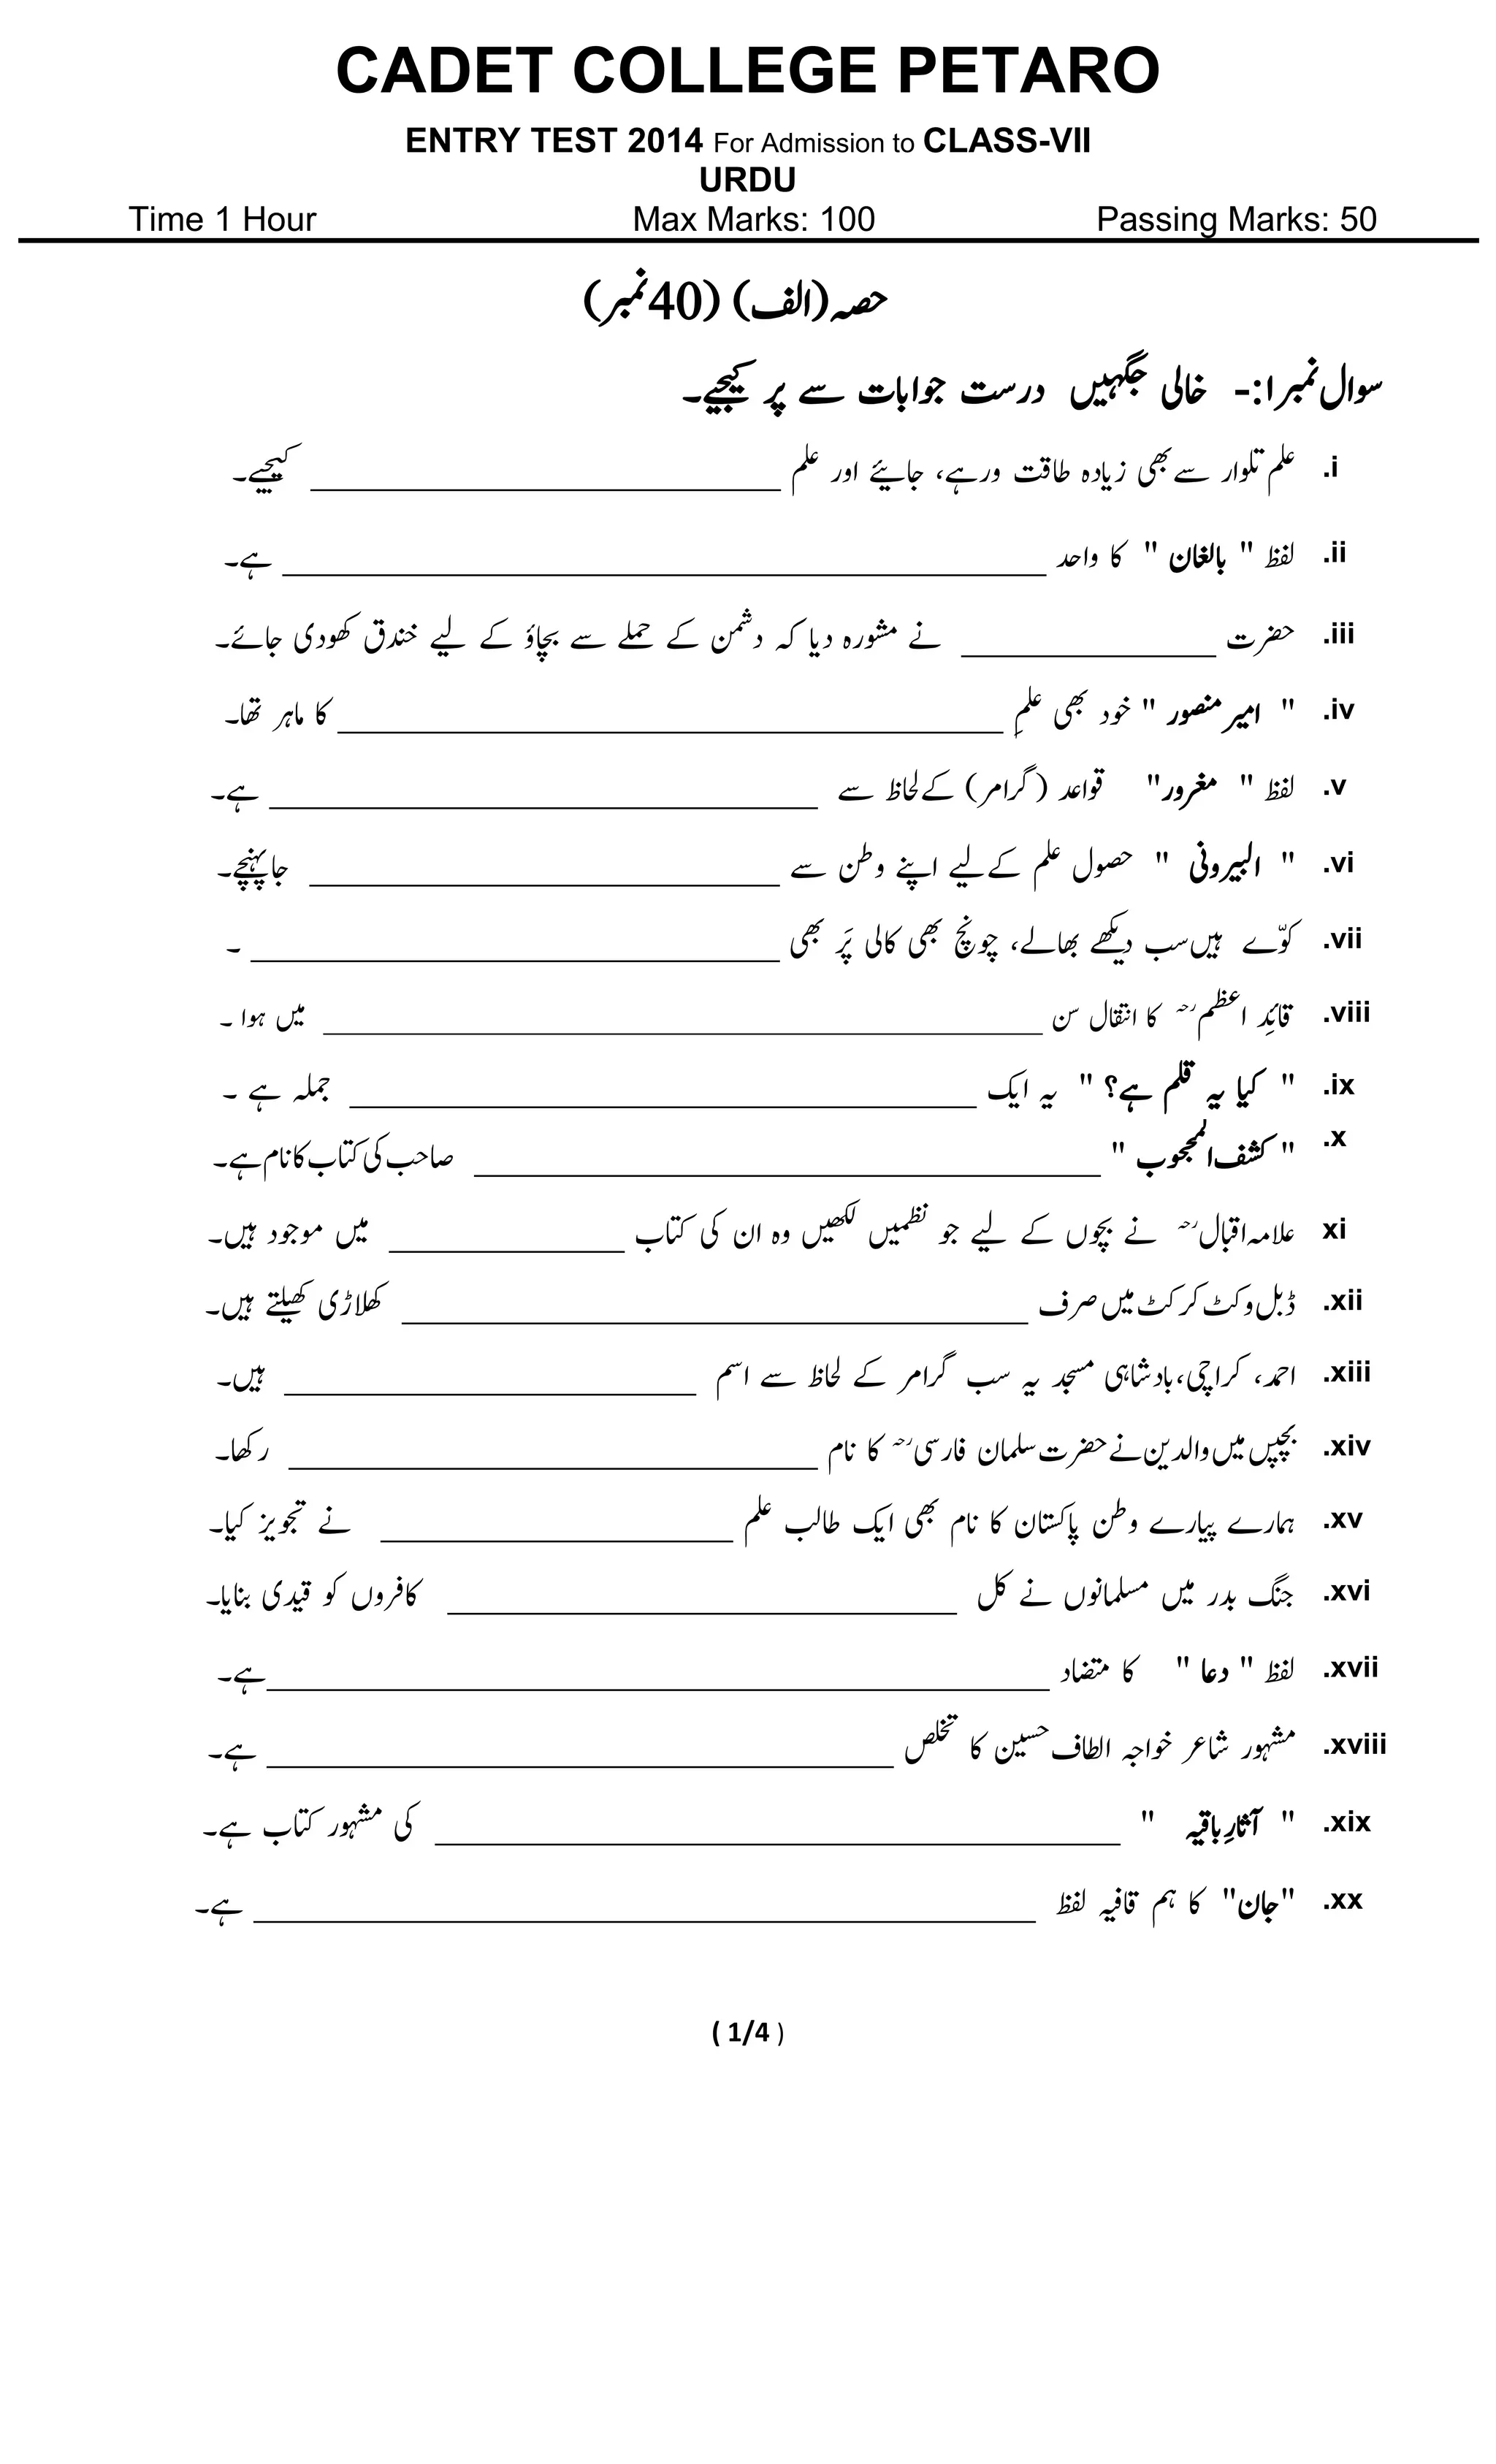 CADET COLLEGE PETARO
ENTRY TEST 2014 For Admission to CLASS-VII
URDU
Time 1 Hour Max Marks: 100 Passing Marks: 50
حصہ(الف) (40نمبر)
سوال نمبر۱:- خالی جگہیں درست جوابات سے پر کیجیے۔
i. علم تلوار سے بھی زیادہ طاقت ور ہے، جایئے اور علم ____________________ کیجیے۔
ii. لفظ " بالغان " کا واحد ____________________ ہے۔
iii. حضرت ____________________ نے مشورہ دیا کہ دشمن کے حملے سے بچاؤ کے لیے خندق کھودی جائے۔
iv. " امیر منصور " خود بھی علمِ ____________________ کا ماہر تھا۔
v. لفظ " مغرور" قواعد (گرامر) کے لحاظ سے ____________________ ہے۔
vi. " البیرونی " حصول علم کے لیے اپنے وطن سے ____________________ جاپہنچے۔
vii. کوّے ہیں سب دیکھے بھالے، چونچ بھی کالی پَر بھی ____________________ ۔
viii. قائدِ اعظمؒ کا انتقال سن ____________________ میں ہوا ۔
ix. " کیا یہ قلم ہے؟ " یہ ایک ____________________ جملہ ہے ۔
x. " کشف المحجوب " ____________________ صاحب کی کتاب کا نام ہے۔
xi علامہ اقبالؒ نے بچوں کے لیے جو نظمیں لکھیں وہ ان کی کتاب ____________________ میں موجود ہیں۔
xii. ڈبل وکٹ کرکٹ میں صرف ____________________ کھلاڑی کھیلتے ہیں۔
xiii. احمد، کراچی، بادشاہی مسجد یہ سب گرامر کے لحاظ سے اسم ____________________ ہیں۔
xiv. بچپن میں والدین نے حضرت سلمان فارسیؒ کا نام ____________________ رکھا۔
xv. ہمارے پیارے وطن پاکستان کا نام بھی ایک طالب علم ____________________ نے تجویز کیا۔
xvi. جنگ بدر میں مسلمانوں نے کل ____________________ کافروں کو قیدی بنایا۔
xvii. لفظ " دعا " کا متضاد ____________________ ہے۔
xviii. مشہور شاعر خواجہ الطاف حسین کا تخلص ____________________ ہے۔
xix. " آثارِ باقیہ " ____________________ کی مشہور کتاب ہے۔
xx. "جان" کا ہم قافیہ لفظ ____________________ ہے۔
( 1/4 )